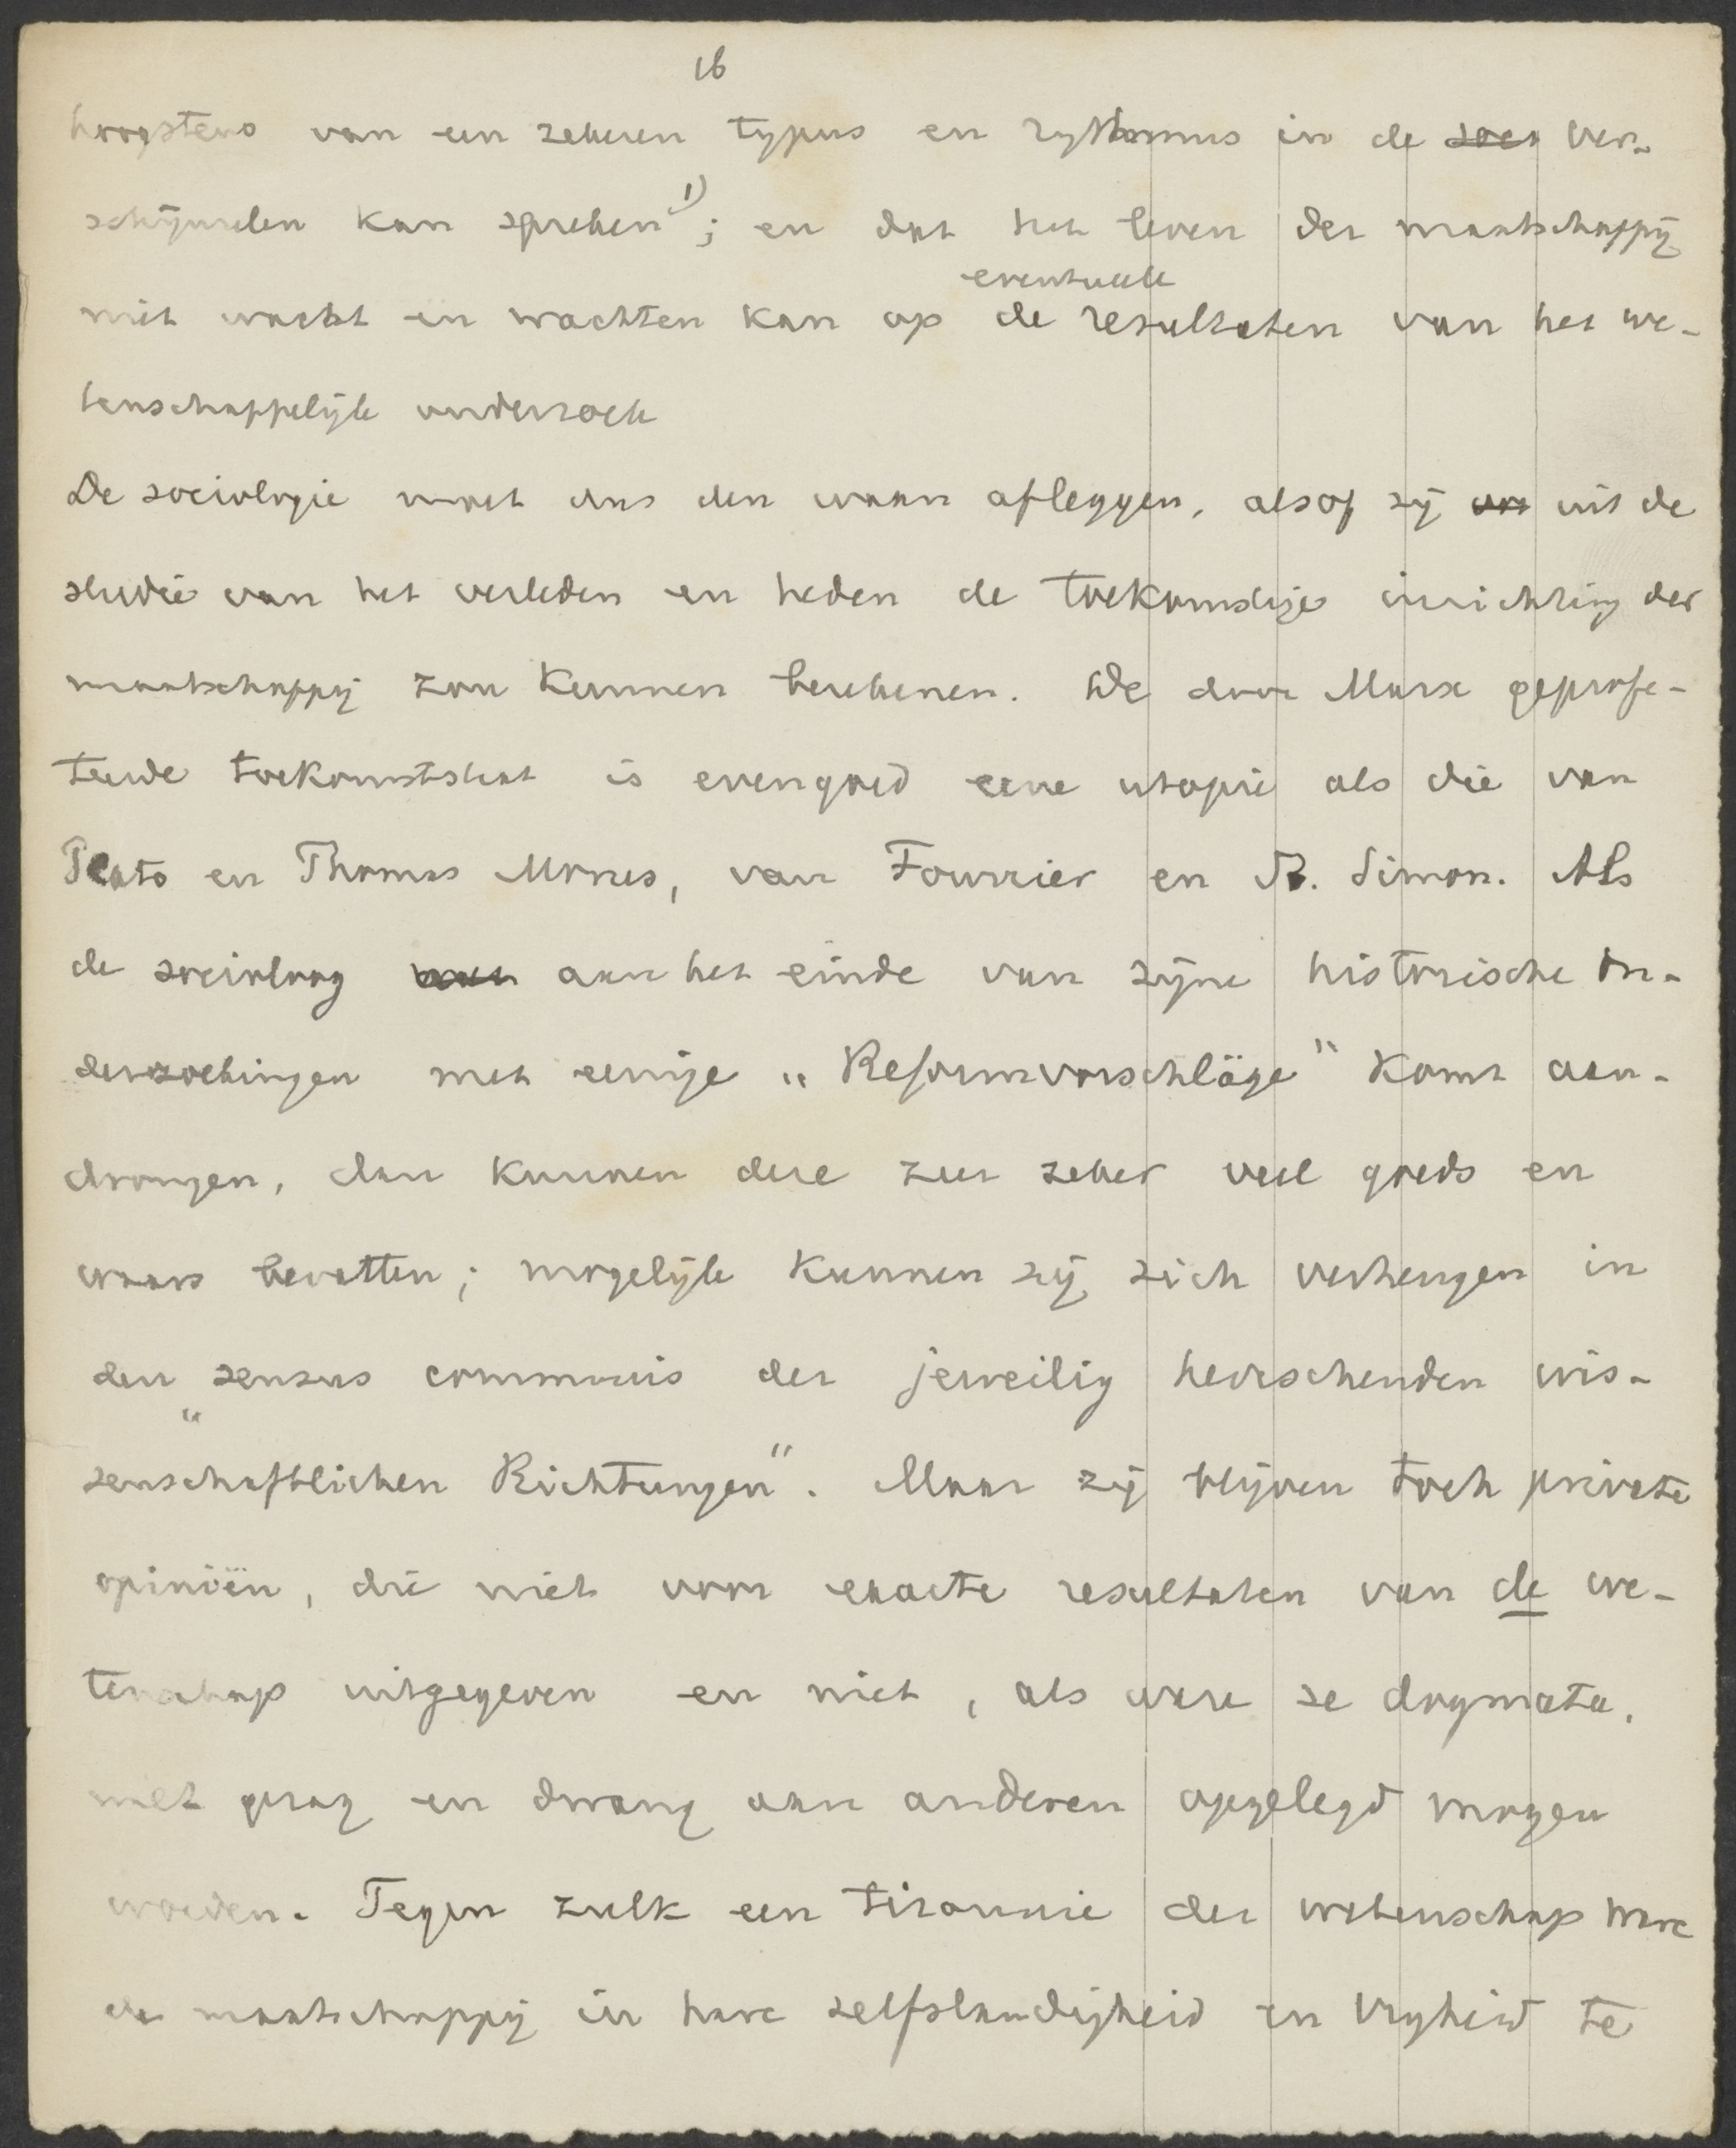 16
hoogstens van een zekeren typus en rythmus in de soci ver-
schijnselen kan spreken 1); en dat het leven der maatschappij
niet wacht en wachten kan op de eventueele resultaten van het we-
tenschappelijk onderzoek
De sociologie moet dus den waan afleggen, alsof zij uit de
studie van het verleden en heden de toekomstige inrichting der
maatschappij zou kunnen berekenen. De door Marx geprofe-
teerde toekomststaat is evengoed eene utopie als die van
Plato en Thomas Morus, van Fourrier en St. Simon. Als
de socioloog aan het einde van zijne historische on-
derzoekingen met eenige „Reformvorschläge" komt aan-
dragen, dan kunnen deze zeer zeker veel goeds en
waars bevatten; mogelijk kunnen zij zich verheugen in
den „sensus communis der jeweilig herrschenden wis-
senschaftlichen Richtungen". Maar zij blijven toch private
opiniën, die niet voor exacte resultaten van de we-
tenschap uitgegeven en niet, als ware ze dogmata,
met gezag en dwang aan anderen opgelegd mogen
worden. Tegen zulk een tirannie der wetenschap ware
de maatschappij in hare zelfstandigheid en vrijheid te